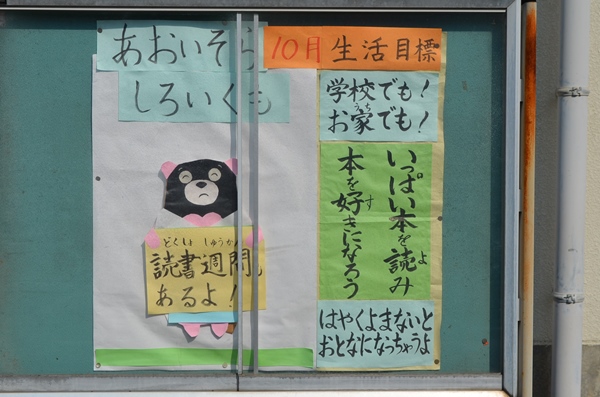 あおいそら
しろいくも
どくしょ しゅうかん
読書週間
あるよ！
10月 生活目標
学校でも！
うち
お家でも！
いっぱい本を読み
よ
本を好きになろう
す
はやくよまないと
おとなになっちゃうよ